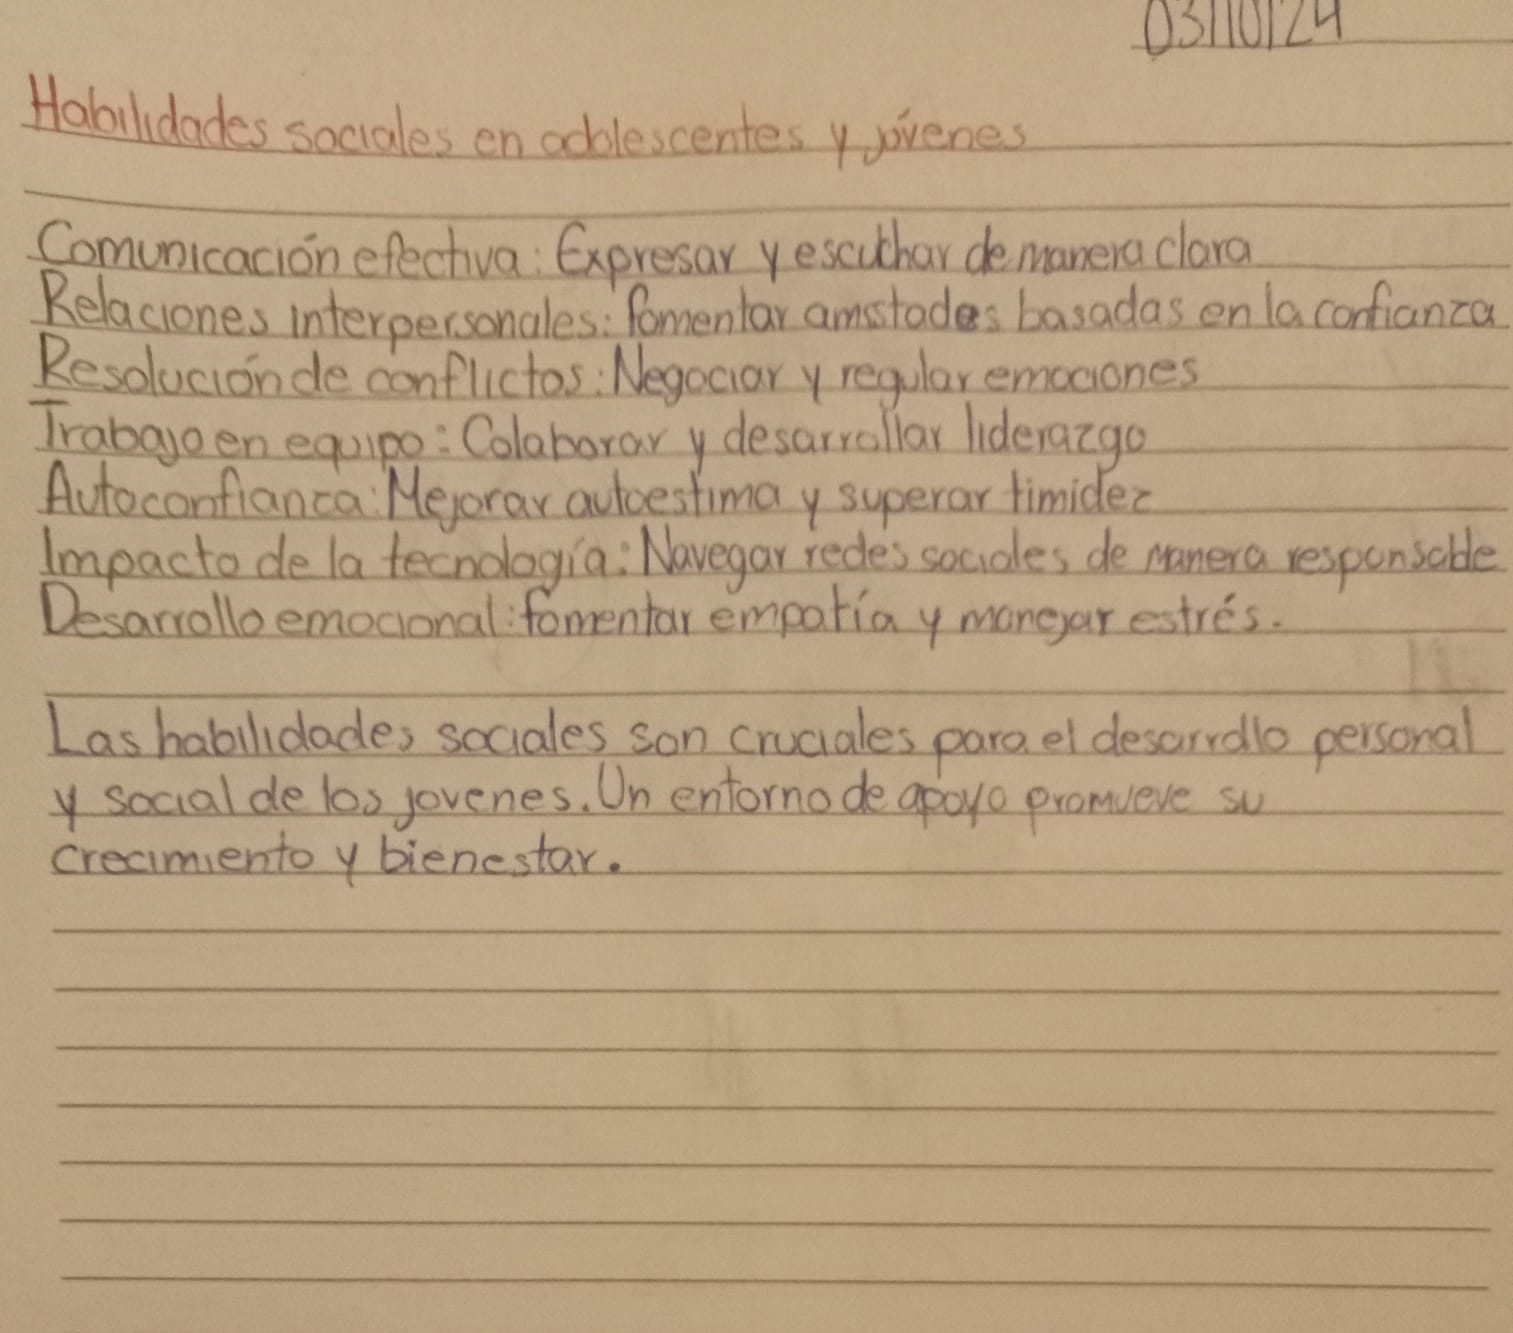 03/10/24
Habilidades sociales en adolescentes y jóvenes
Comunicación efectiva: Expresar y escuchar de manera clara
Relaciones interpersonales: fomentar amistades basadas en la confianza
Resolución de conflictos: Negociar y regular emociones
Trabajo en equipo: Colaborar y desarrollar liderazgo
Autoconfianza: Mejorar autoestima y superar timidez
Impacto de la tecnología: Navegar redes sociales de manera responsable
Desarrollo emocional: fomentar empatía y manejar estrés.
Las habilidades sociales son cruciales para el desarrollo personal
y social de los jovenes. Un entorno de apoyo promueve su
crecimiento y bienestar.